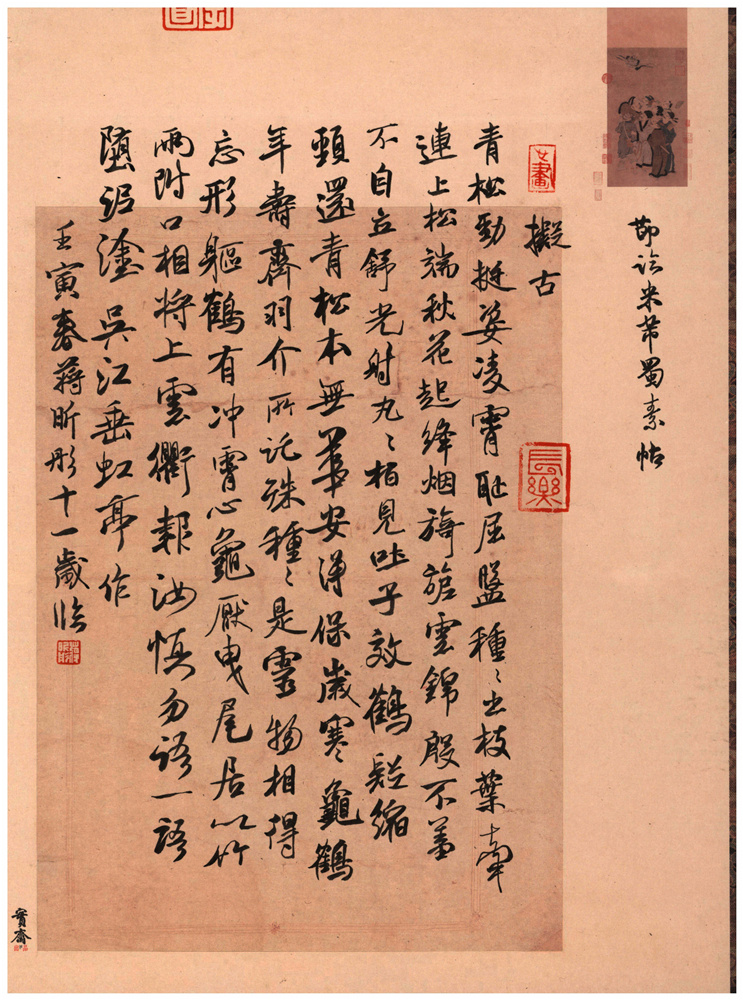 节临米芾蜀素帖
擬古
長樂
青松勁挺姿凌霄恥屈盤種〻出枝葉牽
連上松端秋花起絳烟旖旎雲錦殷不羞
不自立舒光射丸〻栢見吐子效鶴疑縮
頸還青松本無華安得保歲寒龜鶴
年壽齊羽介所託殊種〻是靈物相得
忘形軀鶴有冲霄心龜厭曳尾居以竹
兩附口相將上雲衢報汝慎勿語一語
墮泥塗吳江垂虹亭作
壬寅春蔣昕彤十一歲臨